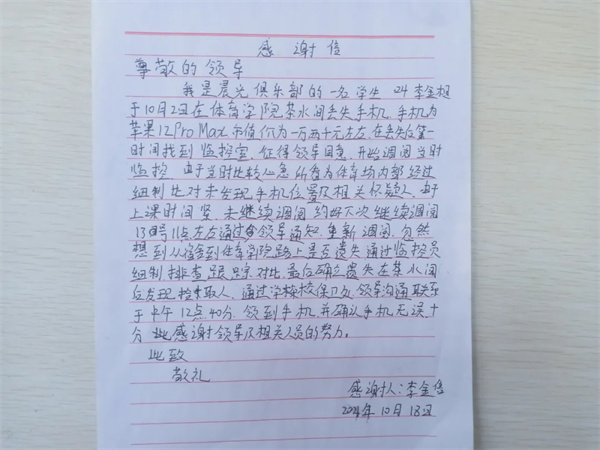 感谢信
尊敬的领导
我是晨光俱乐部的一名学生 李金
于10月2日在体育学院茶水间丢失手机，手机为
苹果12Pro Max 市值价为一万两千元左右，在丢失第一
时间找到监控室，征得领导同意，开始调阅当时
监控，由于当时比较心急所查为体育场内部经过
细制比对未发现手机位置及相关怀疑人，由于
上课时间紧，未继续调阅约好下次继续调阅
13日号11点左右通过领导通知重新调阅，忽然
想到从宿舍到体育学院路上是否遗失通过监控员
细制排查跟踪对比最后确立遗失在茶水间
后发现捡取人，通过学校保卫处领导沟通联系
于中午12点40分，领到手机并确认手机无误，十
分 此感谢领导及相关人员的努力。
此致
敬礼
感谢人：李金
10月13日